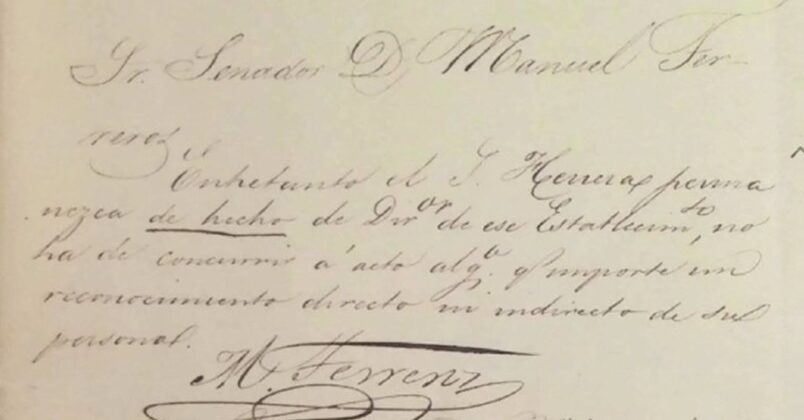 Sr. Senador D. Manuel Fer-
reros
Entretanto el S. Herrera perma
nezca de hecho de Diror de ese Establecimto, no
ha de concurrir á acto algo. q importe un
reconocimiento directo ni indirecto de su
personal.
M. Ferreros